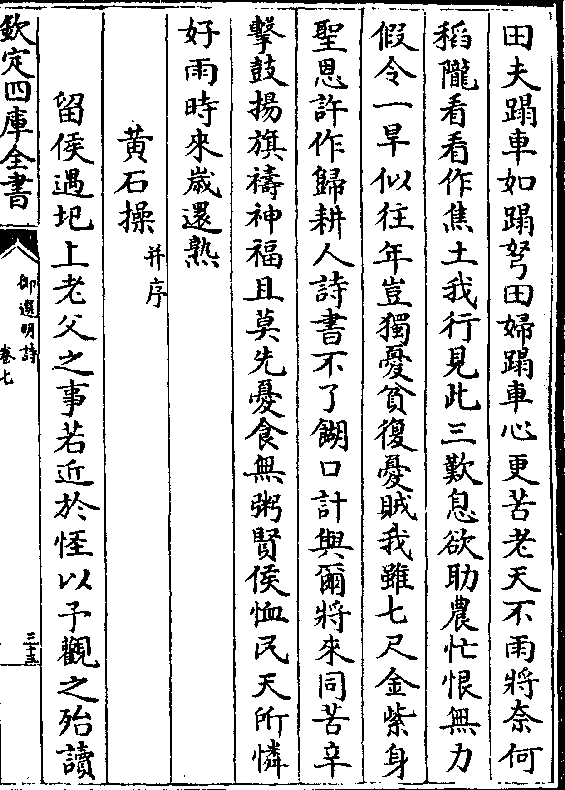 田夫蹋車如蹋弩田婦蹋車心更苦老天不雨將奈何
稻隴看看作焦土我行見此三歎息欲助農忙恨無力
假令一旱似往年豈獨憂貧復憂賊我雖七尺金紫身
聖恩許作歸耕人詩書不了餬口計與爾將來同苦辛
擊鼓揚旗禱神福且莫先憂食無粥賢侯恤民天所憐
好雨時來歲還熟
黄石操并序
留侯遇圯上老父之事若近於怪以予觀之殆讀
欽定四庫全書
御選明詩
卷七
三十五